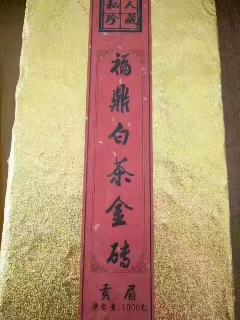 私人
珍藏
福鼎白茶金砖
贡眉
净含量:1000克